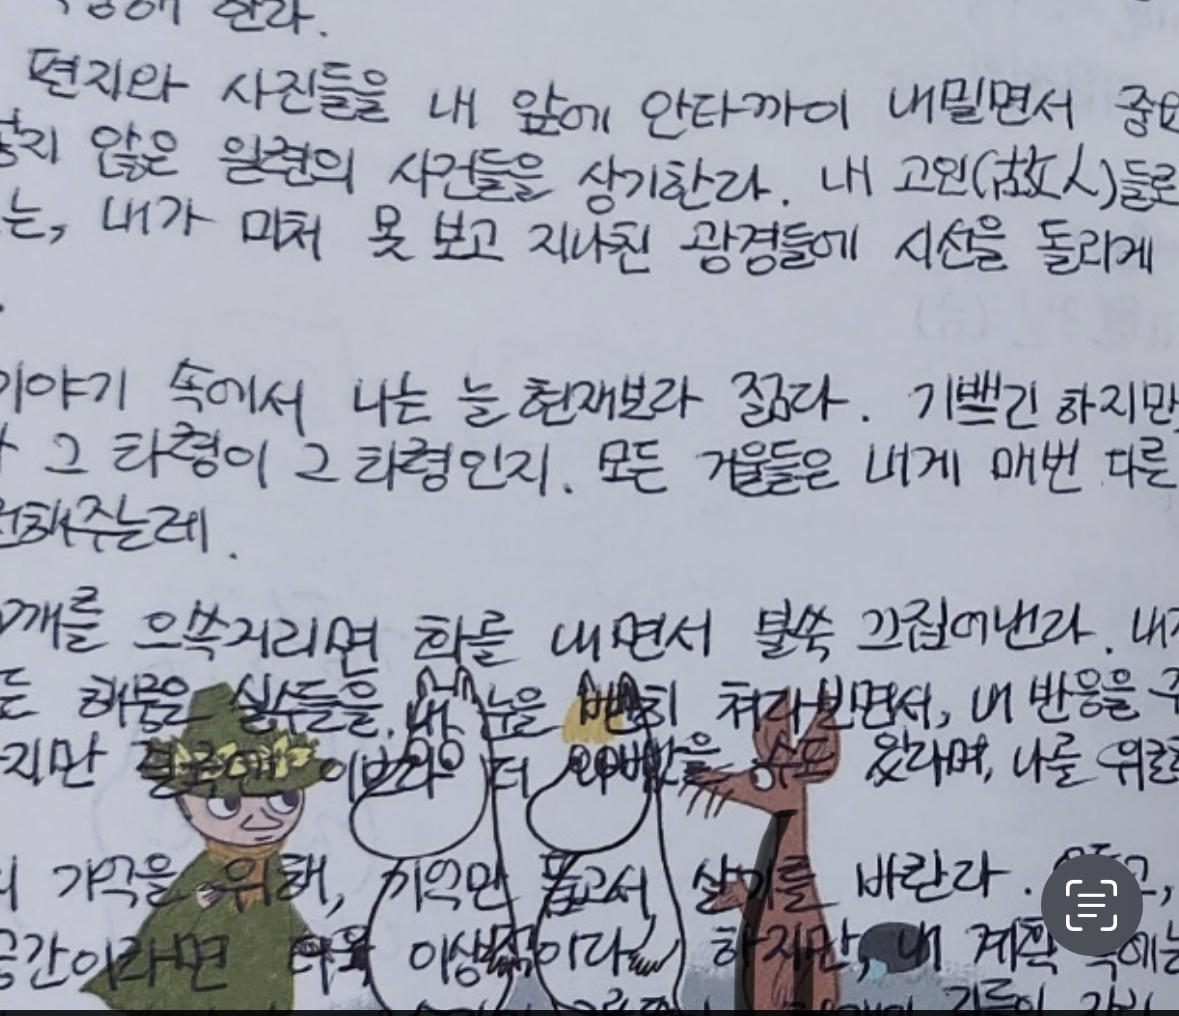 한다.
편지와 사진들을 내 앞에 안타까이 내밀면서 중요
지 않은 일련의 사건들을 상기한다. 내 고인(故人)들로
는, 내가 미처 못 보고 지나친 광경들에 시선을 돌리게
이야기 속에서 나는 늘 현재보다 젊다. 기쁘긴 하지만,
그 타령이 그 타령인지. 모든 거울들은 내게 매번 다른
해주는데.
깨를 으쓱거리면 화를 내면서 불쑥 끄집어낸다. 내가
허물은 실수들을. 내 눈을 빤히 쳐다보면서, 내 반응을
지만 결국엔 이보다 더 나빴을 수도 있다며, 나를 위로
기억을 위해, 기억만 품고서 살기를 바란다.
공간이라면 더욱 이상적이다. 하지만, 내 계획 속에는